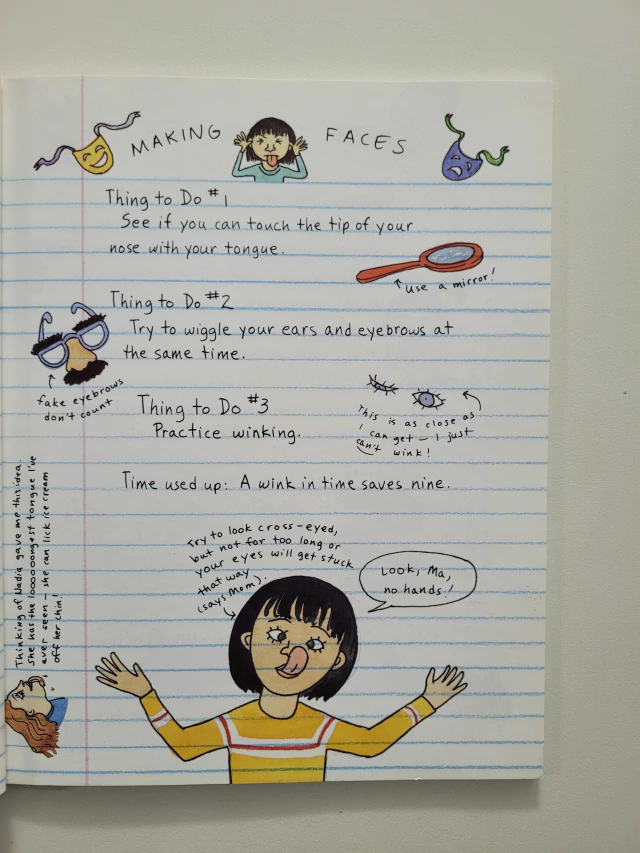 MAKING FACES
Thing to Do #1
See if you can touch the tip of your
nose with your tongue.
Use a mirror!
Thing to Do #2
Try to wiggle your ears and eyebrows at
the same time.
fake eyebrows
don't count
Thing to Do #3
Practice winking.
This is as close as
I can get – I just
can't wink!
Time used up: A wink in time saves nine.
Thinking of Nadia gave me this idea.
She has the looooongest tongue I've
ever seen – she can lick ice cream
off her chin!
Try to look cross-eyed,
but not for too long or
your eyes will get stuck
that way
(says Mom).
Look, Ma,
no hands!